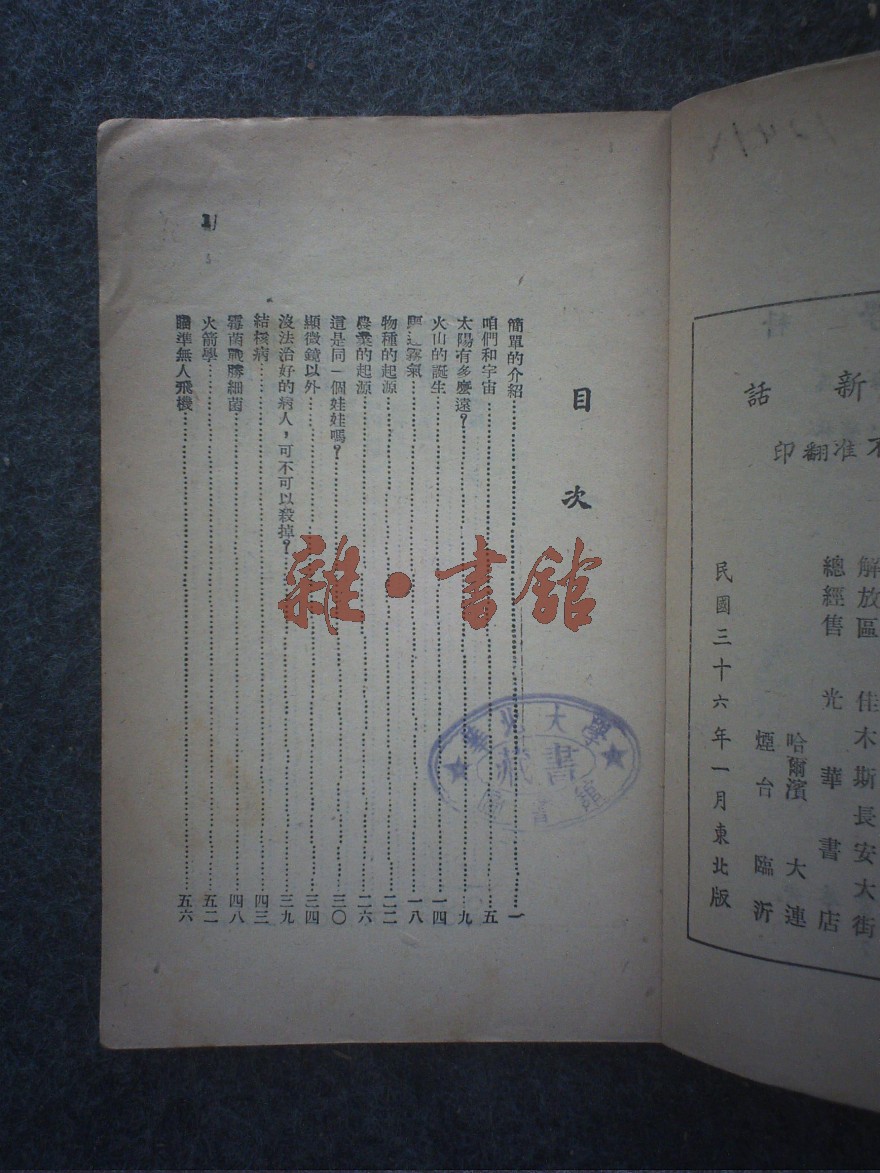 新話
不准翻印
解放區 佳木斯長安大街
總經售 光華書店
哈爾濱 大連
煙台 臨沂
民國三十六年一月東北版
目次
簡單的介紹……一
咱們和宇宙……五
太陽有多麼遠？……九
火山的誕生……一四
霧氣……一八
物種的起源……二二
農業的起源……二六
這是同一個娃娃嗎？……三〇
顯微鏡以外……三四
沒法治好的病人，可不可以殺掉？……三九
結核病……四三
霉菌戰勝細菌……四八
火箭學……五二
瞄準無人飛機……五六
雜·書館
華北大學
藏書